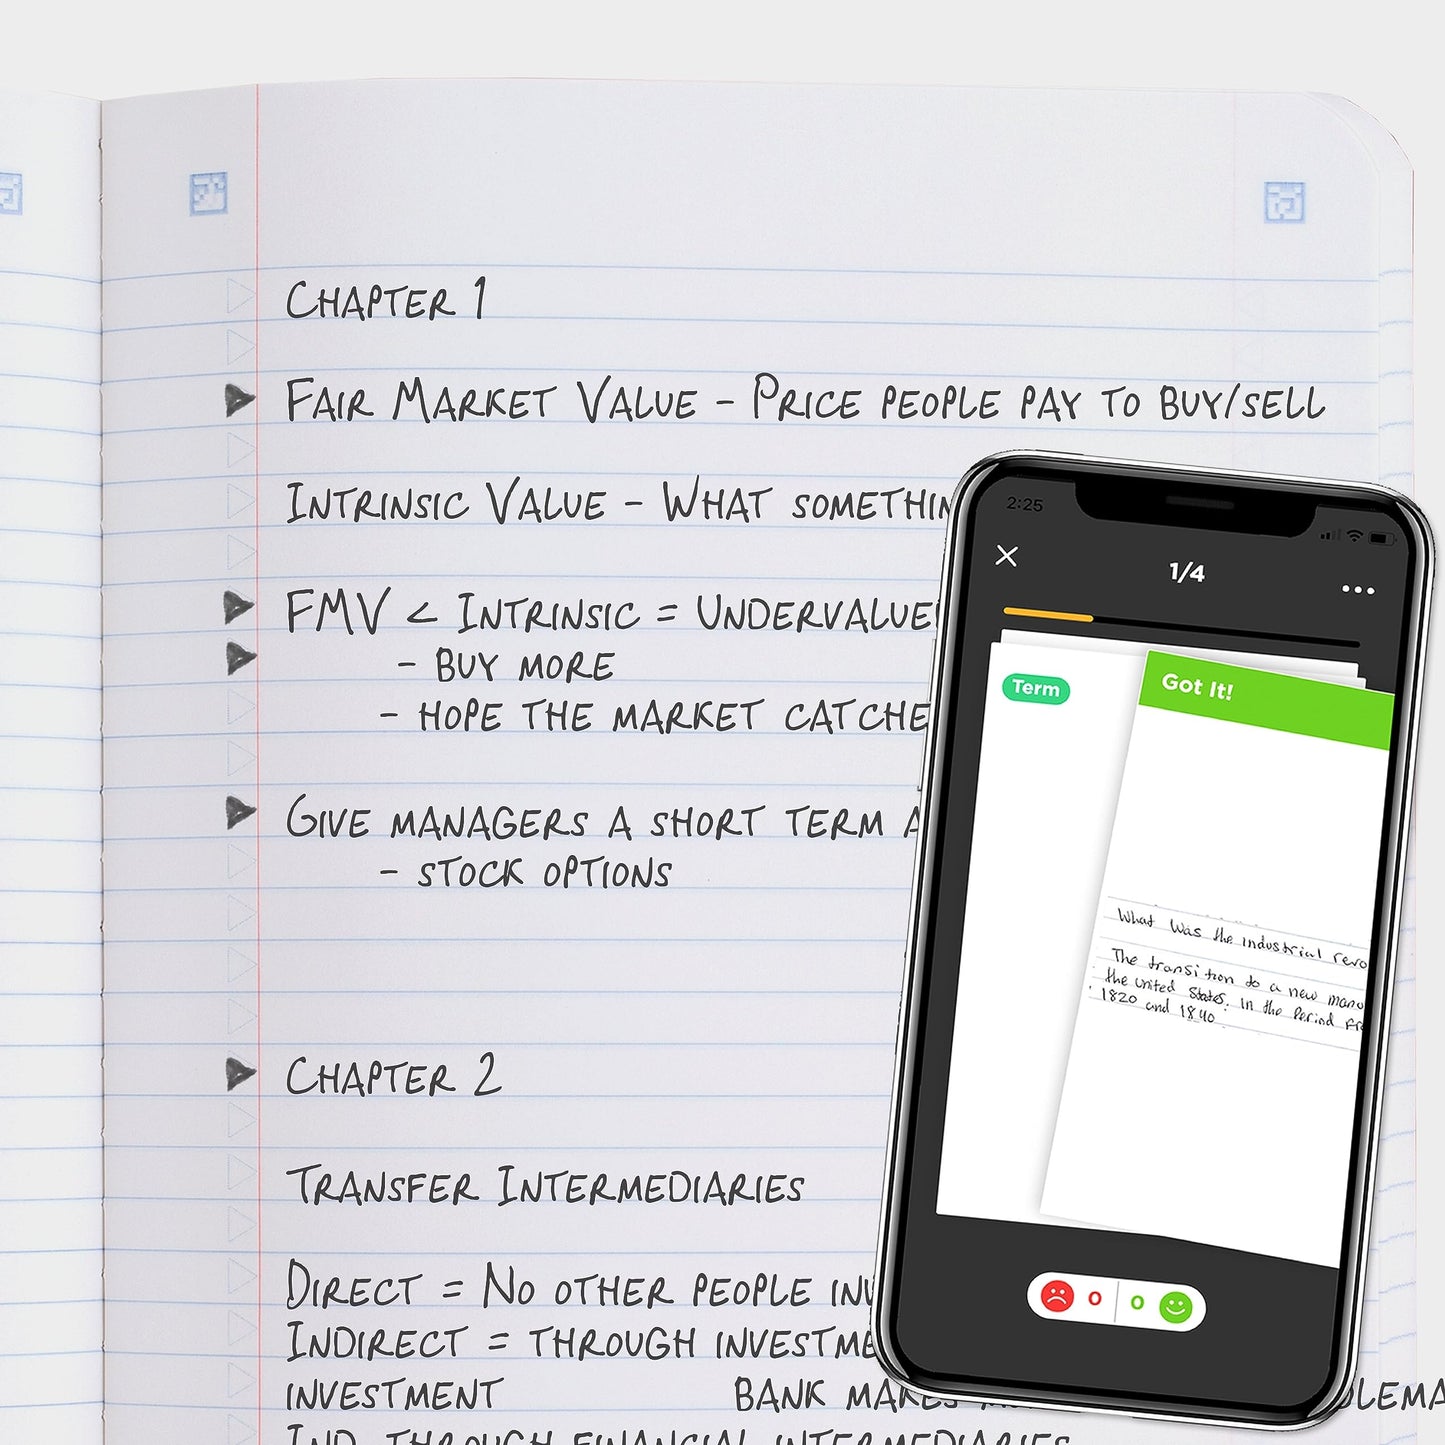 CHAPTER 1
FAIR MARKET VALUE - PRICE PEOPLE PAY TO BUY/SELL
INTRINSIC VALUE - WHAT
FMV < INTRINSIC =
- BUY MORE
- HOPE THE MARKET
GIVE MANAGERS A SHORT TERM
- STOCK OPTIONS
CHAPTER 2
TRANSFER INTERMEDIARIES
DIRECT = NO OTHER PEOPLE
INDIRECT = THROUGH
INVESTMENT BANK MAKES
IND. THROUGH FINANCIAL INTERMEDIARIES
2:25
1/4
Term
Got It!
What was the industrial
The transition to a new
the United States. In the Period
1820 and 1840
0 0